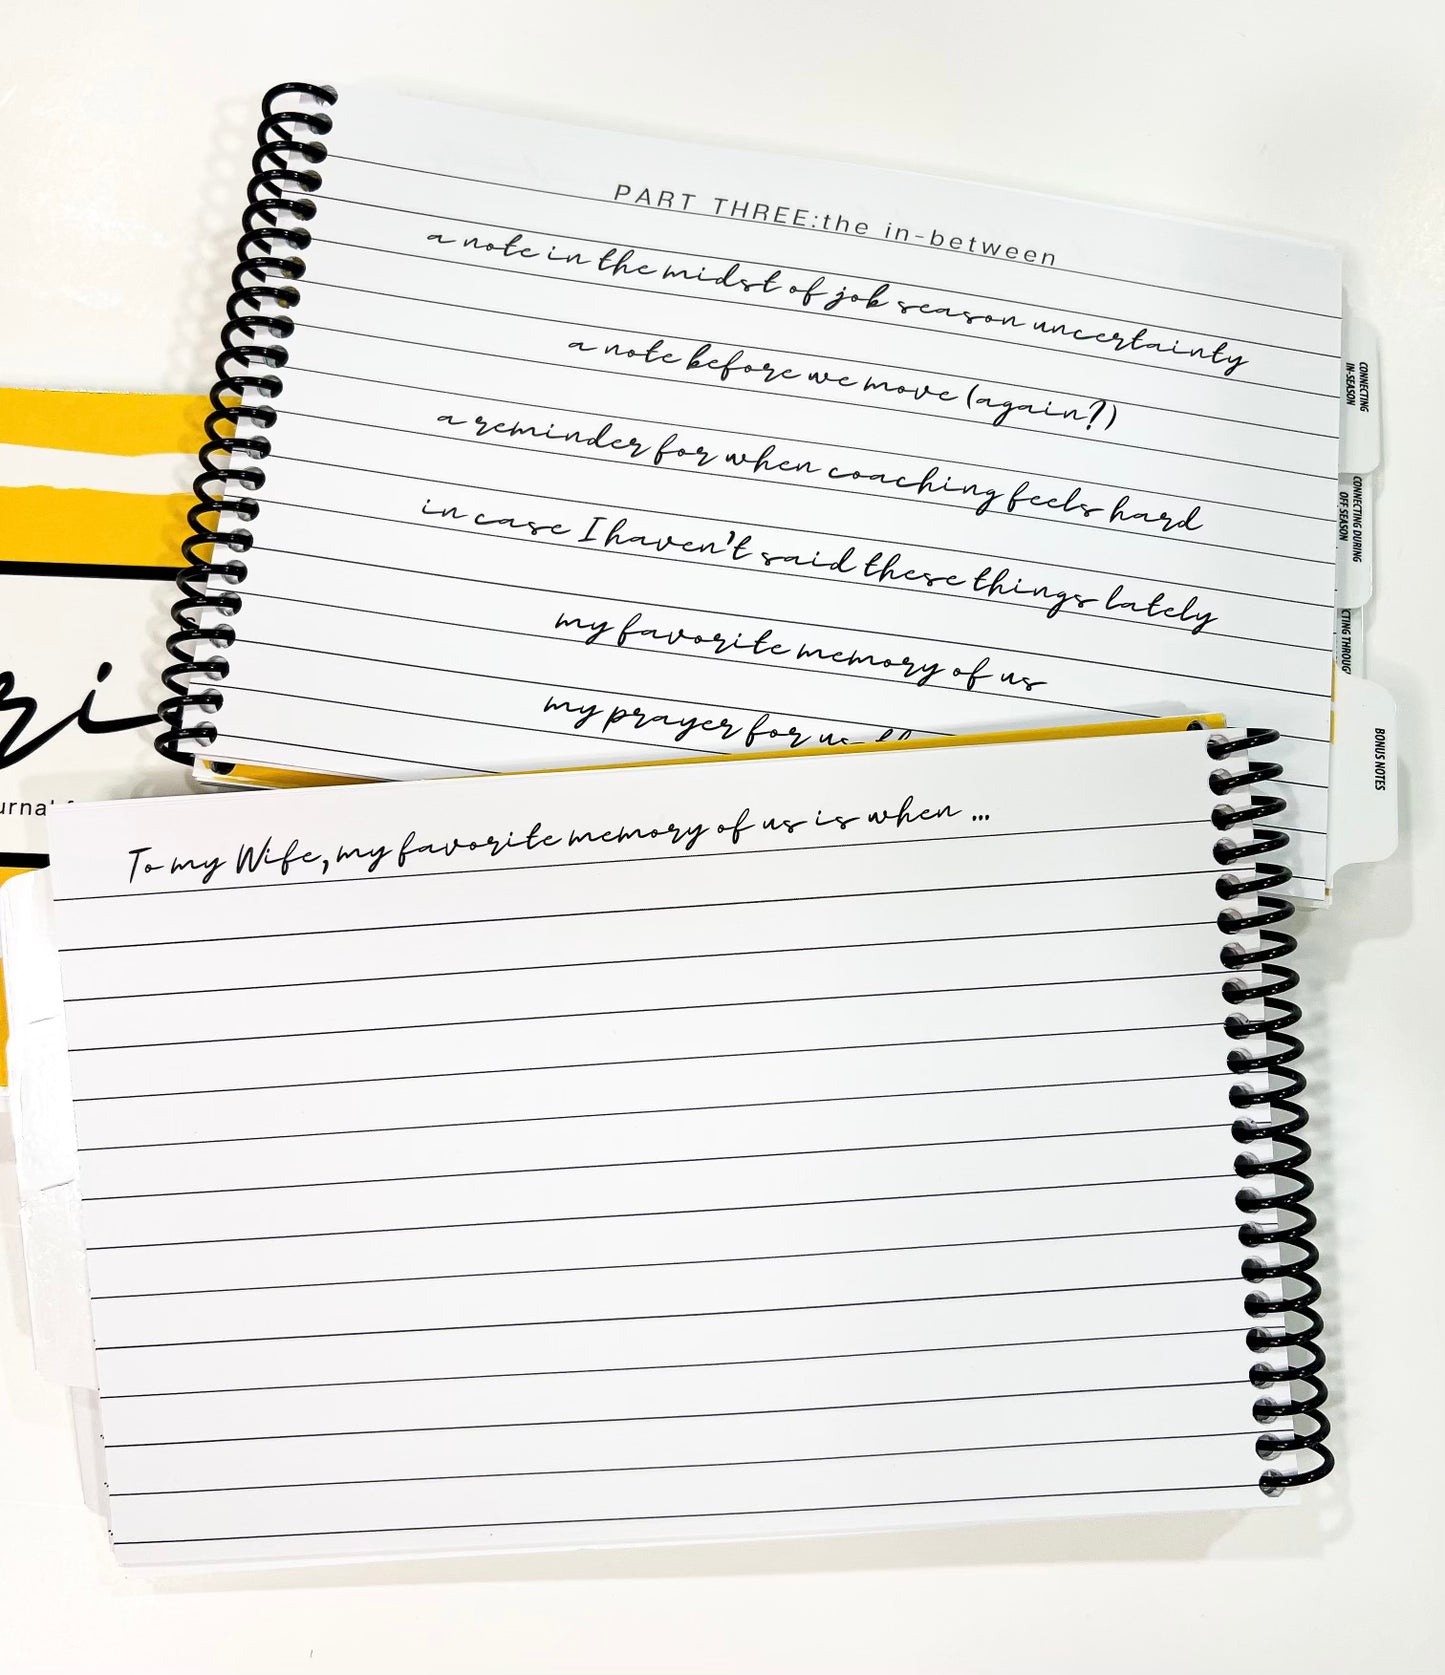 PART THREE:the in-between
a note in the midst of job season uncertainty
a note before we move (again?)
a reminder for when coaching feels hard
in case I haven't said these things lately
my favorite memory of us
my prayer for us
To my Wife, my favorite memory of us is when ...
CONNECTING
IN-SEASON
CONNECTING DURING
OFF SEASON
BONUS NOTES